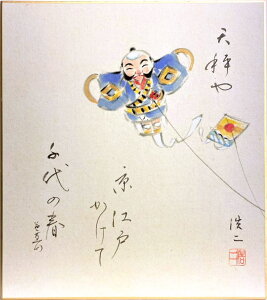 天秤や
京江戸
かけて
千代の春
浩二